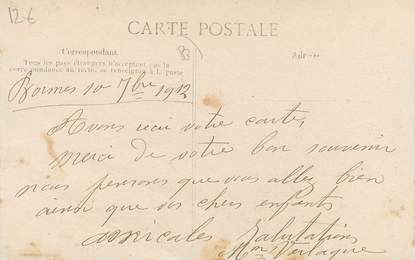 12€
CARTE POSTALE
83
Correspondance
Adresse
Tous les pays étrangers n'acceptent pas la
correspondance au recto, se renseigner à la poste
Bormes 10 7bre 1912
Avons reçu votre carte
merci de votre bon souvenir
nous pensons que vous allez bien
ainsi que vos chers enfants
amicales Salutations
Mme